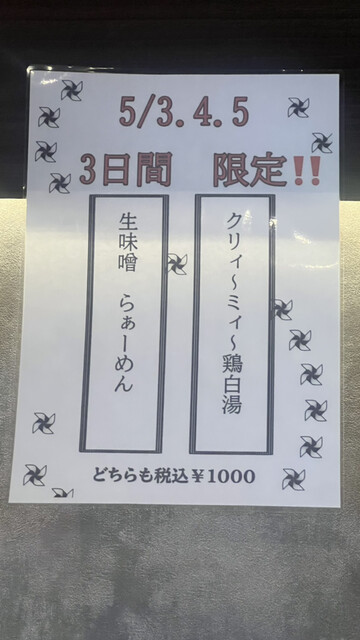 5/3.4.5
3日間　限定‼
クリィ～ミィ～鶏白湯
生味噌　らぁーめん
どちらも税込￥1000